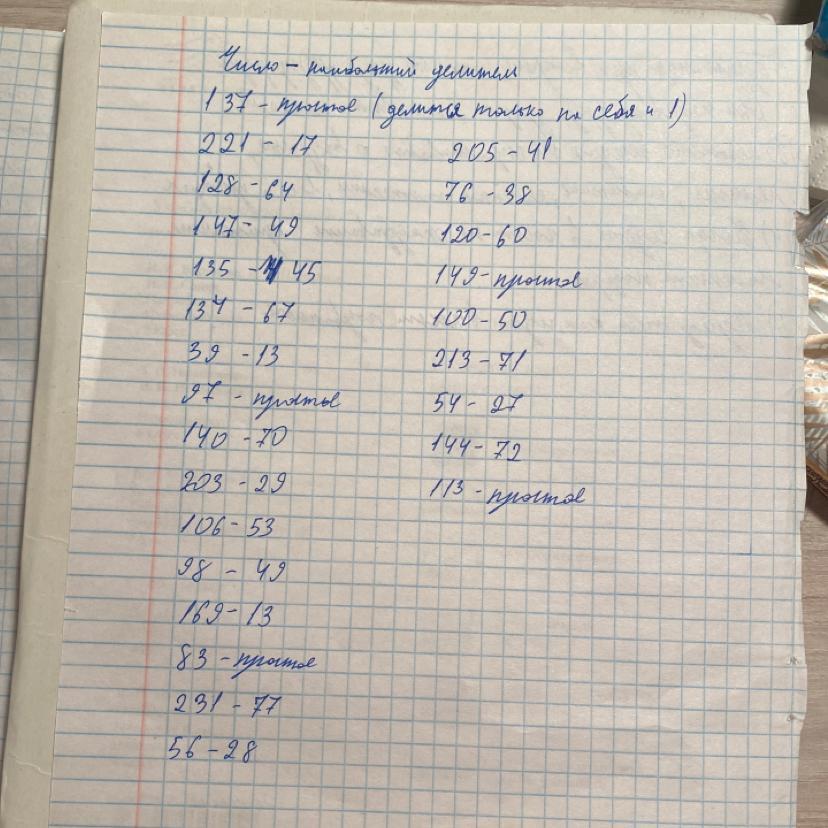 Число – наибольший делитель
137 – простое (делится только на себя и 1)
221 – 17
128 – 64
147 – 49
135 – 45
134 – 67
39 – 13
97 – простое
140 – 70
203 – 29
106 – 53
98 – 49
169 – 13
83 – простое
231 – 77
56 – 28
205 – 41
76 – 38
120 – 60
149 – простое
100 – 50
213 – 71
54 – 27
144 – 72
113 – простое